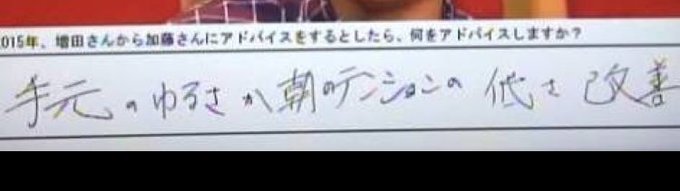 015年、増田さんから加藤さんにアドバイスをするとしたら、何をアドバイスしますか？
手元のゆるさか朝のテンションの低さ改善